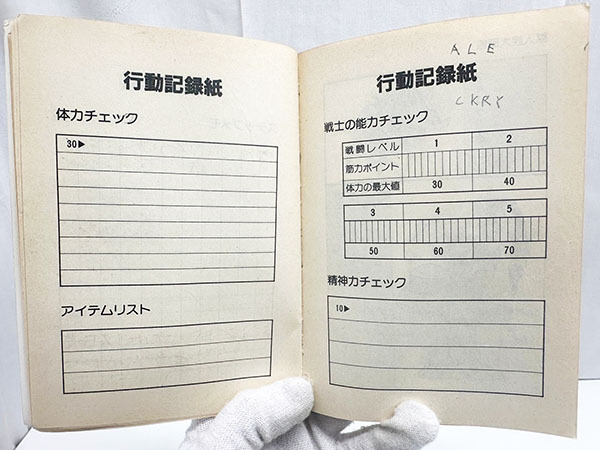 行動記録紙
体力チェック
30▶
アイテムリスト
ALE
行動記録紙
CKRY
戦士の能力チェック
戦闘レベル 1 2
筋力ポイント
体力の最大値 30 40
3 4 5
50 60 70
精神力チェック
10▶